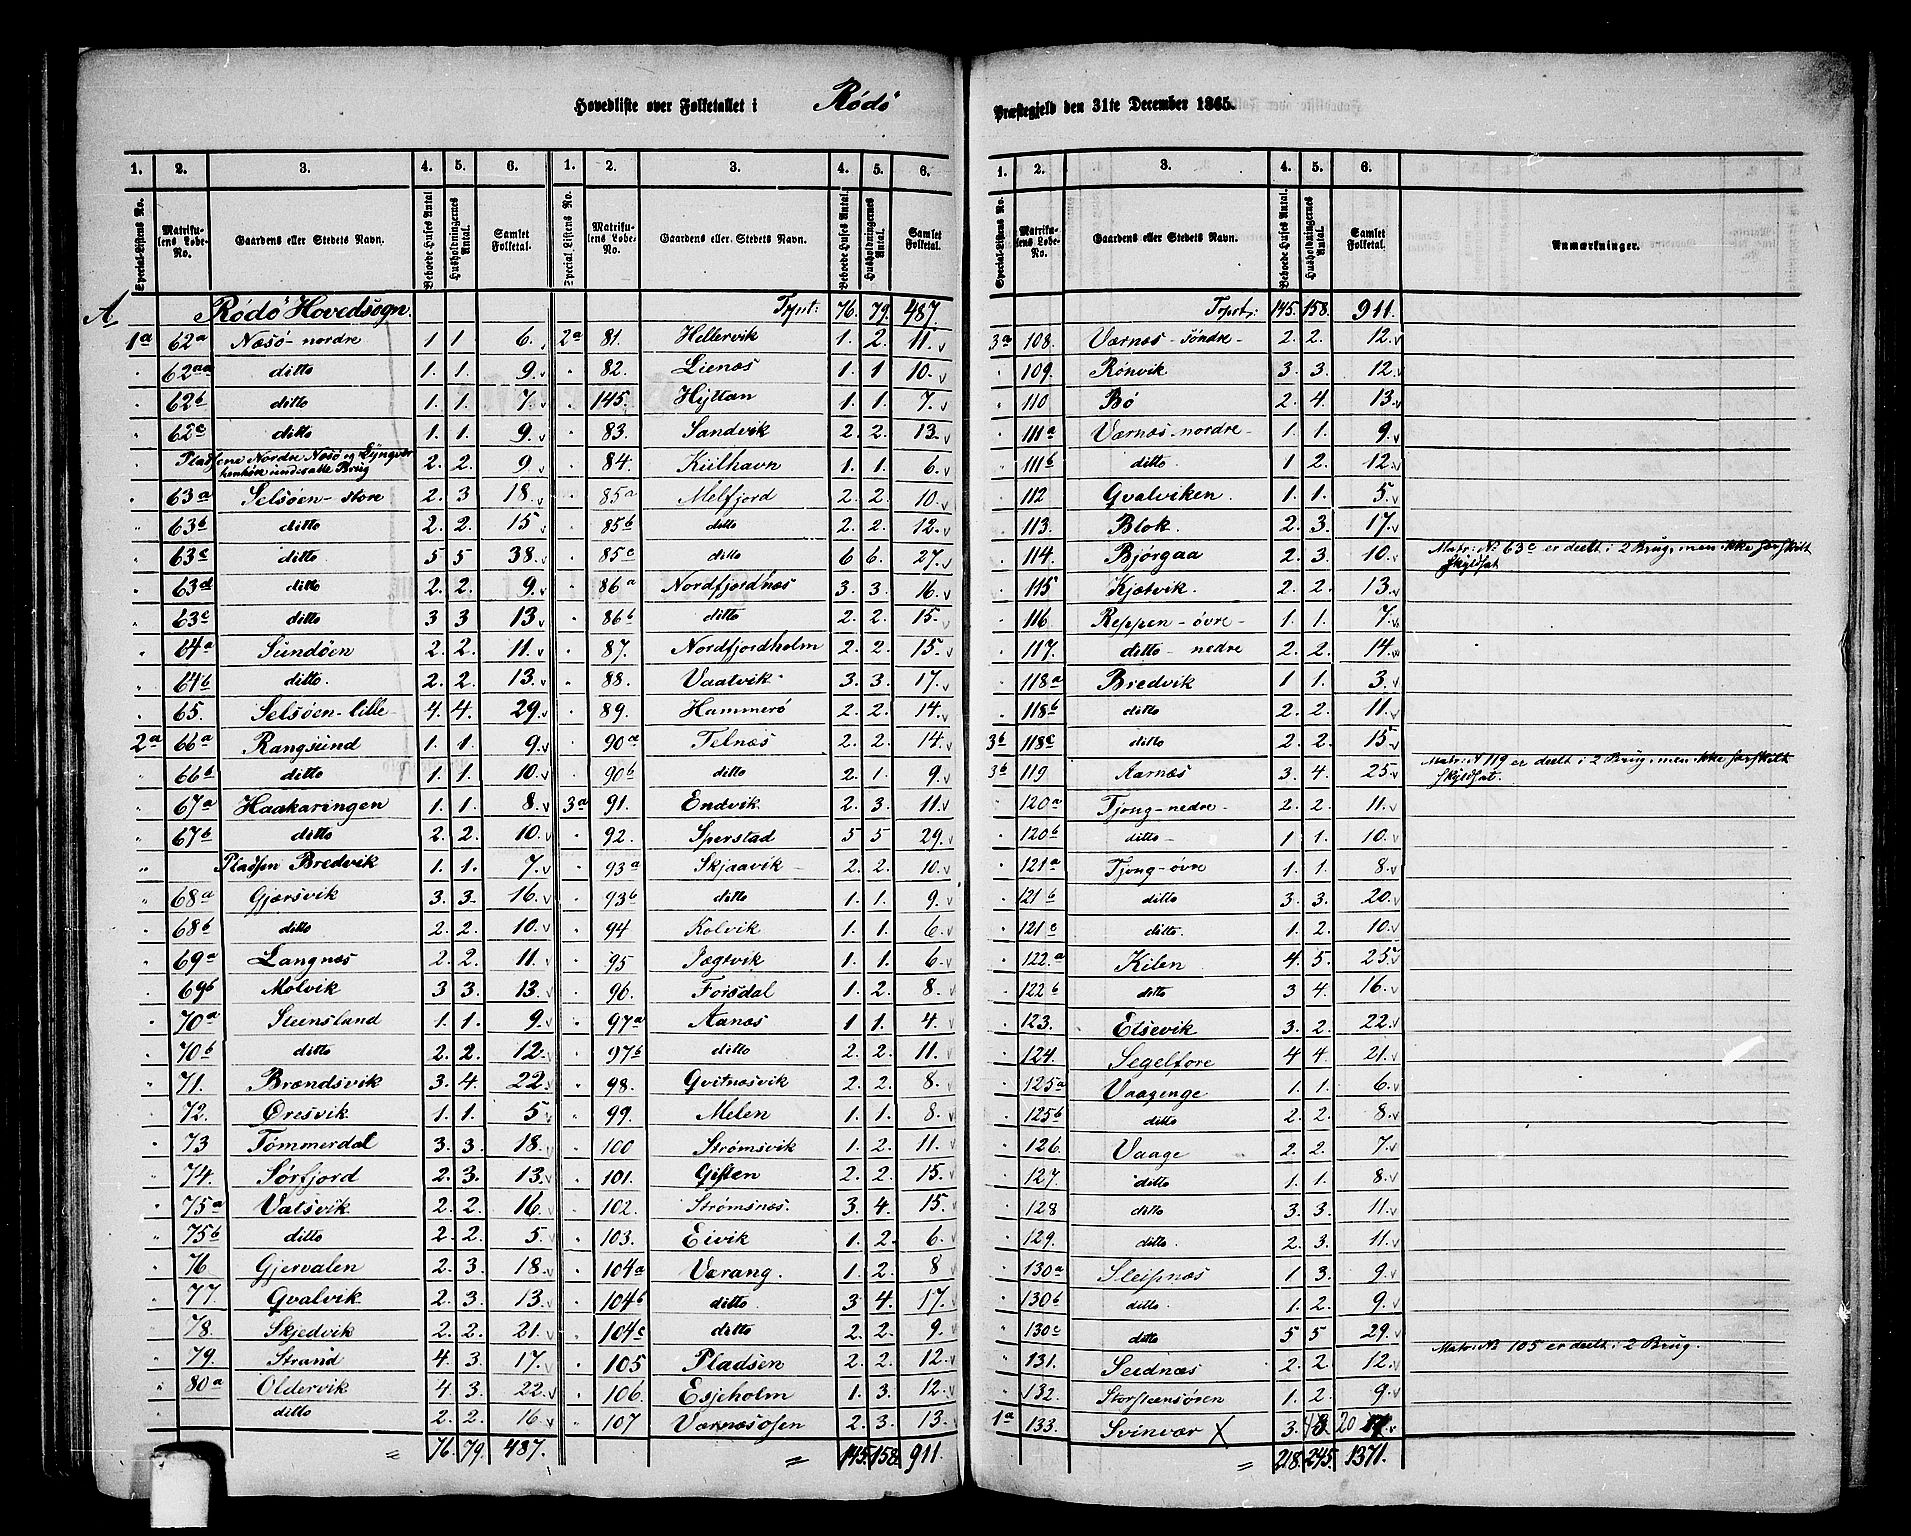 Hovedliste over Folketallet i Rödö
Præstegjeld den 31te December 1865.
1. 2. 3. 4. 5. 6. 1. 2. 3. 4. 5. 6.
Special-Listens No. Matrikulens Løbe-No. Gaardens eller Stedets Navn. Beboede Huses Antal Husholdningernes Antal. Samlet Folketal. Special-Listens No. Matrikulens Løbe-No. Gaardens eller Stedets Navn. Beboede Huses Antal. Husholdningernes Antal. Samlet Folketal.
A Rödö Hovedsogn
1a 62a Næsö-nordre 1 1 6.
" 62aa ditto 1. 1. 9.
" 62b ditto 1. 1. 7.
" 62c ditto 1. 1. 9.
Pladsene Nordre Næsö og
Brug 2. 2. 9
" 63a Selsöen-store 2. 3 18.
" 63b ditto 2. 2. 15
" 63c ditto 5 5 38.
" 63d ditto 2. 2. 9.
" 63e ditto 3 3 13.
" 64a Sundöen 2. 2. 11.
" 64b ditto. 2. 2. 13.
" 65. Selsöen-lille 4. 4. 29.
2a 66a Rangsund 1. 1. 9
" 66b ditto 1. 1. 10.
" 67a Haakaringen 1. 1. 8.
" 67b ditto 2. 2. 10.
" Pladsen Bredvik 1. 1. 7.
" 68a Gjærsvik 3. 3. 16.
" 68b ditto 2. 2. 10.
" 69a Langnæs 2. 2. 11.
" 69b Molvik 3 3. 13.
" 70a Steensland 1. 1. 9.
" 70b ditto 2. 2. 12.
" 71. Brændsvik 3. 4. 22.
" 72. Öresvik 1. 1. 5
" 73 Tömmerdal 3. 3. 18.
" 74. Sörfjord 2. 3. 13.
" 75a Valsvik 2. 2. 16
" 75b ditto 2. 2. 5.
" 76 Gjervalen 2. 3. 18.
" 77 Qvalvik 2. 3. 13.
" 78. Skjedvik 2. 2. 21.
" 79. Strand 4. 3 17.
" 80a Oldervik 4. 3. 22.
" ditto 2. 2. 16
= 76. 79. 487.
Tpst: 76. 79. 487.
2a 81. Hellervik 1. 2. 11.
" 82. Lienæs 1. 1 10.
" 145. Hyttan 1. 1. 7.
" 83. Sandvik 2. 2. 13.
" 84. Kilhavn 1. 1. 6.
" 85a Melfjord 2. 2. 10.
" 85b ditto 2. 2. 12.
" 85c ditto 6 6. 27.
" 86a Nordfjordnæs 3. 3. 16.
" 86b ditto 2. 2. 15.
" 87. Nordfjordholm 2. 2. 15.
" 88. Vaatvik 3. 3. 17.
" 89. Hammerö 2. 2. 14.
" 90a Telnæs 2. 2. 14.
" 90b ditto 2. 1. 9.
3a 91. Endvik 2. 3. 11.
" 92. Sperstad 5 5 29.
" 93a Skjaavik 2. 2. 10.
" 93b ditto 1. 1. 9.
" 94 Kolvik 1. 1. 6
" 95 Jægtvik 1. 1. 6
" 96. Forsdal 1. 2. 8.
" 97a Aanæs 1 1. 4.
" 97b ditto 2. 2. 11.
" 98. Qvitnæsvik 2. 2. 8.
" 99. Melen 1. 1. 8.
" 100 Strömsvik 1. 2. 11.
" 101. Giften 2. 2. 15.
" 102. Strömsnæs. 3. 4. 15.
" 103. Eivik 1. 2. 6
" 104a Værang. 1. 2. 8
" 104b ditto. 3 4. 17.
" 104c ditto. 2. 2. 9.
" 105 Pladsen 2. 2. 12.
" 106. Esjeholm 1. 3. 12.
" 107 Værnæsosen 2. 3. 13.
= 145. 158. 911.
1. 2. 3. 4. 5. 6.
Special-Listens No. Matrikulens Løbe-No. Gaardens eller Stedets Navn. Beboede Huses Antal. Husholdningernes Antal. Samlet Folketal. Anmærkninger.
Tpst: 145. 158. 911.
3a 108. Værnæs-söndre 2. 2. 12.
" 109. Rönvik 3. 3. 12.
" 110 Bö 2. 4. 13.
" 111a Værnæs-nordre 1. 1. 9.
" 111b ditto. 1 2. 12.
" 112 Qvalviken. 1. 1. 5.
" 113. Blok. 2. 3. 17.
" 114. Bjørgaa 2. 3. 10. Matr: No 63c er deelt i 2 Brug, men ikke særskilt skyldsat
" 115 Kjetvik. 2. 2. 13.
" 116 Reppen-övre 1. 1. 7.
" 117. ditto-nedre 2. 2. 14.
" 118a Bredvik 1 1. 3.
" 118b ditto 2. 2. 11.
3b 118c ditto 2. 2. 15
3b 119 Aarnæs 3. 4. 25. Matr: No 119 er deelt i 2 Brug, men ikke særskilt skyldsat.
" 120a Tjong-nedre 2. 2. 11.
" 120b ditto 1 1. 10.
" 121a Tjong-övre 1. 1. 8.
" 121b ditto 3. 3. 20.
" 121c ditto. 1. 2. 10.
" 122a Kilen 4. 5. 25.
" 122b ditto 3 4. 16.
" 123. Elsevik 3. 2. 22.
" 124. Segelfore 4 4. 21.
" 125a Vaagenge 1. 1. 6
" 125b ditto 2. 2. 8.
" 126. Vaage 2. 2. 7.
" 127. ditto 1. 1. 8.
" 128 ditto 3. 3. 11.
" 129. ditto. 2. 3. 11.
" 130a Sleipnæs 1. 3. 9.
" 130b ditto. 1. 2. 9.
" 130c ditto 5 5 29.
" 131. Seidnæs 2. 2. 12. Matr: No 105 er deelt i 2 Brug.
" 132. Storsteensören 1. 2. 9.
1a 133. Svinvær X 3. 3 20
= 218. 245. 1371.